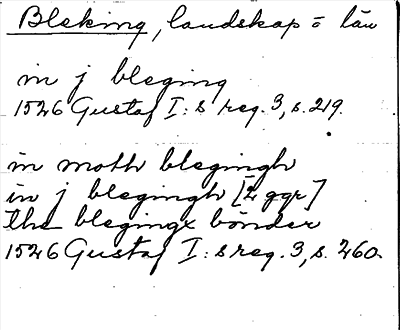 Bleking, landskap = län
in j bleging
1526 Gustaf I:s reg. 3, s. 219.
in moth blegingh
in j blegingh [2 ggr]
the blegings bönder
1526 Gustaf I:s reg. 3, s. 260.